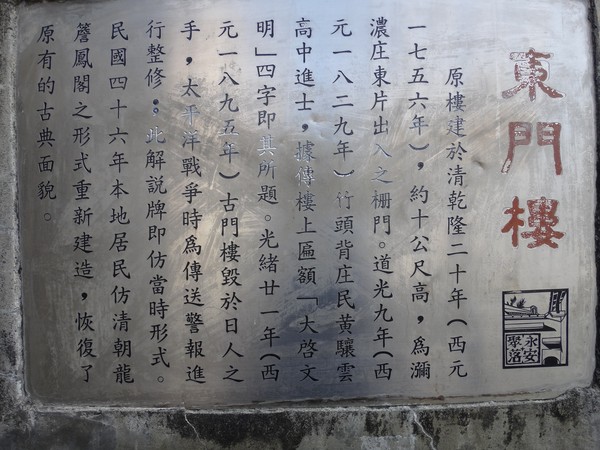 東門樓
原樓建於清乾隆二十年(西元
一七五六年),約十公尺高,為瀰
濃庄東片出入之柵門。道光九年(西
元一八二九年)竹頭背庄民黃驤雲
高中進士,據傳樓上匾額「大啓文
明」四字即其所題。光緒廿一年(西
元一八九五年)古門樓毀於日人之
手,太平洋戰爭時為傳送警報進
行整修;此解說牌即仿當時形式。
民國四十六年本地居民仿清朝龍
簷鳳閣之形式重新建造,恢復了
原有的古典面貌。
永安
聚落